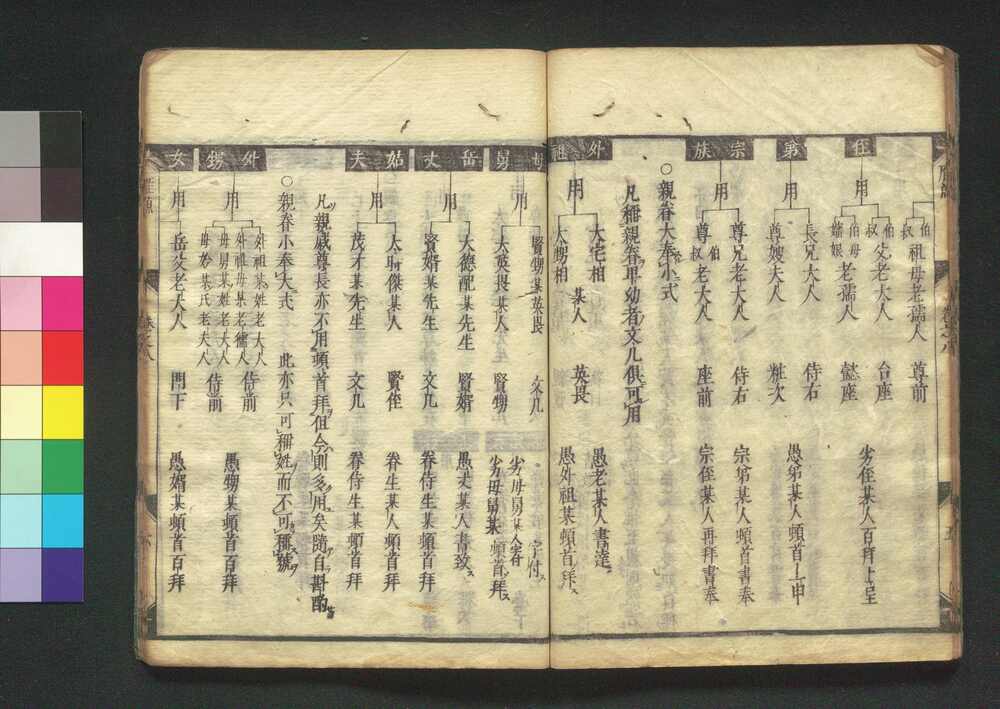 侄 第 宗族 外祖
用
伯叔 祖母老孺人 尊前
伯叔 父老大人 台座
伯母 嬸娘 老孺人 懿座
劣侄某人百拜上呈
用
長兄大人 侍右
尊嫂夫人 粧次
愚弟某人頓首上申
用
尊兄老大人 侍右 宗弟某人頓首書奉
尊伯叔老大人 座前 宗侄某人再拜書奉
○親眷大奉小式
凡稱親眷卑幼者文几俱可用
用
大宅相
大甥相 某人 英畏
愚老某人書達
愚外祖某頓首拜
母舅 岳丈 姑夫 外甥 女
用
賢甥某英畏 文几 劣母舅某人字付
大英畏某人 賢甥 劣母舅某頓首拜
用
大德配某先生 賢婿 愚丈某人書致
賢婿某先生 文几 眷侍生某頓首拜
用
大可傑某人 賢侄 眷生某人頓首拜
茂才某先生 文几 眷侍生某頓首拜
凡親戚尊長亦不用頓首拜但今則多用矣隨自斟酌
○親眷小奉大式 此亦只可稱姓而不可稱號
用
外祖某姓老大人
外祖母某老孺人 侍前
母舅某姓老大人
母妗某氏老夫人 侍前
愚甥某頓首百拜
用
岳父老大人 門下 愚婿某頓首百拜
卷之八